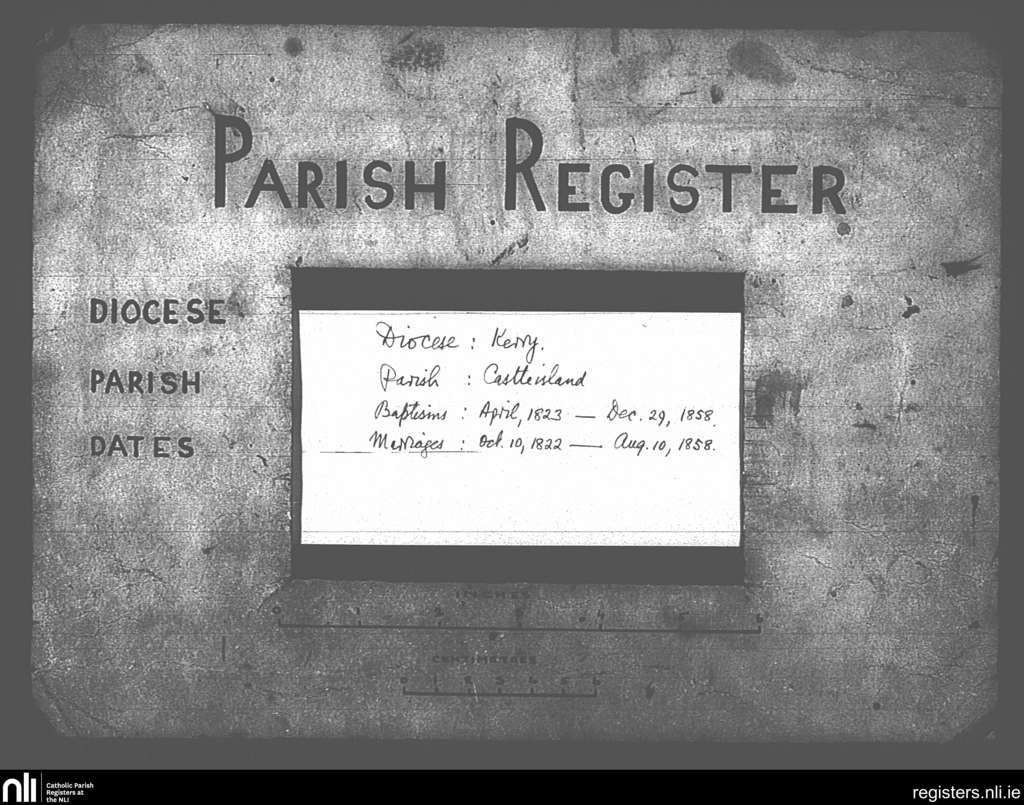 PARISH REGISTER
DIOCESE
PARISH
DATES
Diocese : Kerry.
Parish : Castleisland
Baptisms : April, 1823 — Dec. 29, 1858.
Marriages : Oct. 10, 1822 — Aug. 10, 1858.
INCHES
CENTIMETRES
nli
Catholic Parish
Registers at
the NLI
registers.nli.ie